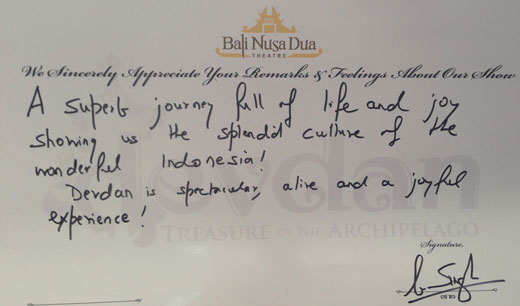 Bali Nusa Dua
THEATRE
We Sincerely Appreciate Your Remarks & Feelings About Our Show
A superb journey full of life and joy
showing us the splendid culture of the
wonderful Indonesia!
Devdan is spectacular, alive and a joyful
experience!
Devdan
TREASURE OF THE ARCHIPELAGO
Signature,